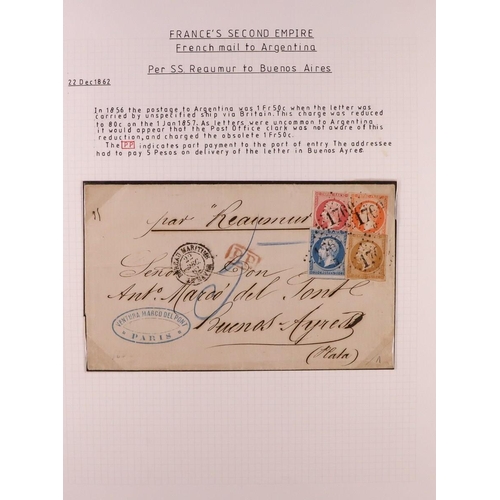 FRANCE'S SECOND EMPIRE
French mail to Argentina
Per SS Reaumur to Buenos Aires
22 Dec 1862
In 1856 the postage to Argentina was 1Fr50c when the letter was
carried by unspecified ship via Britain. This charge was reduced
to 80c on the 1 Jan 1857. As letters were uncommon to Argentina
it would appear that the Post Office clark was not aware of this
reduction, and charged the obsolete 1Fr50c.
The PP indicates part payment to the port of entry. The addressee
had to pay 5 Pesos on delivery of the letter in Buenos Ayres
par "Reaumur"
PP
Señor Don
Anto. Marcó del Pont
Buenos-Ayres
(Plata)
VENTURA MARCO DEL PONT
PARIS